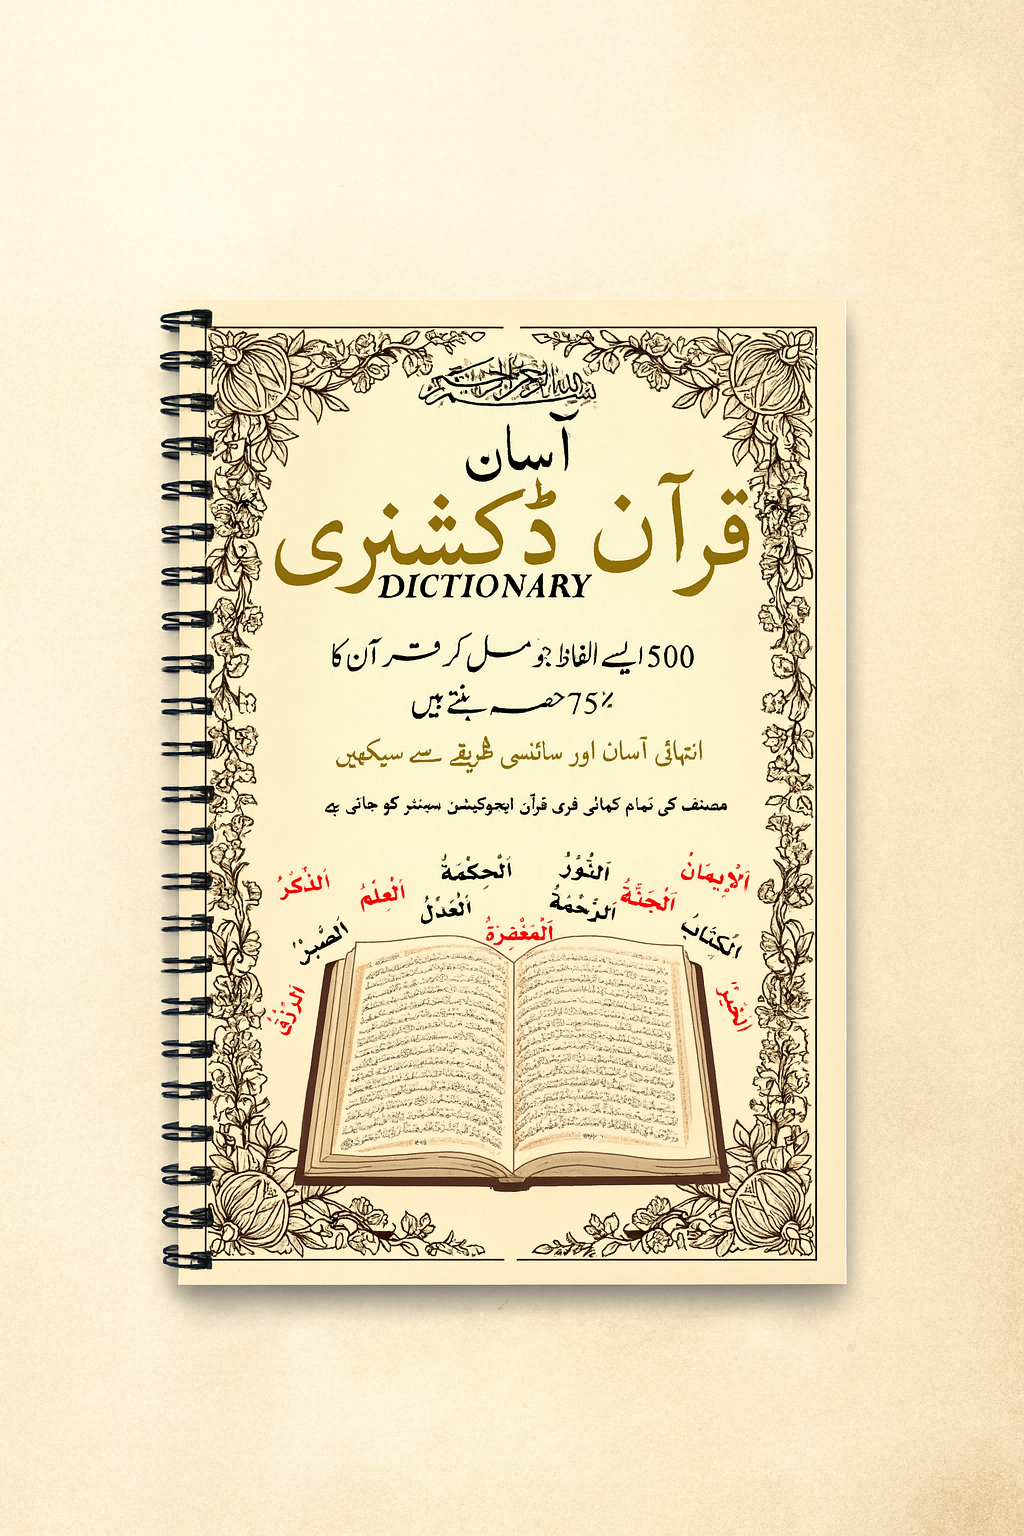 بسم الله الرحمن الرحيم
آسان
قرآن ڈکشنری
DICTIONARY
500 ایسے الفاظ جو مل کر قرآن کا
75٪ حصہ بنتے ہیں
انتہائی آسان اور سائنسی طریقے سے سیکھیں
مصنف کی تمام کمائی فری قرآن ایجوکیشن سینٹر کو جاتی ہے
اَلْإِيمَانُ
اَلنُّوْرُ
اَلْحِكْمَةُ
اَلذِّكْرُ
اَلْجَنَّةُ
اَلرَّحْمَةُ
اَلْعَدْلُ
اَلْعِلْمُ
اَلْمَغْفِرَةُ
الْكِتَابُ
اَلصَّبْرُ
اَلْخَيْرُ
اَلرِّزْقُ